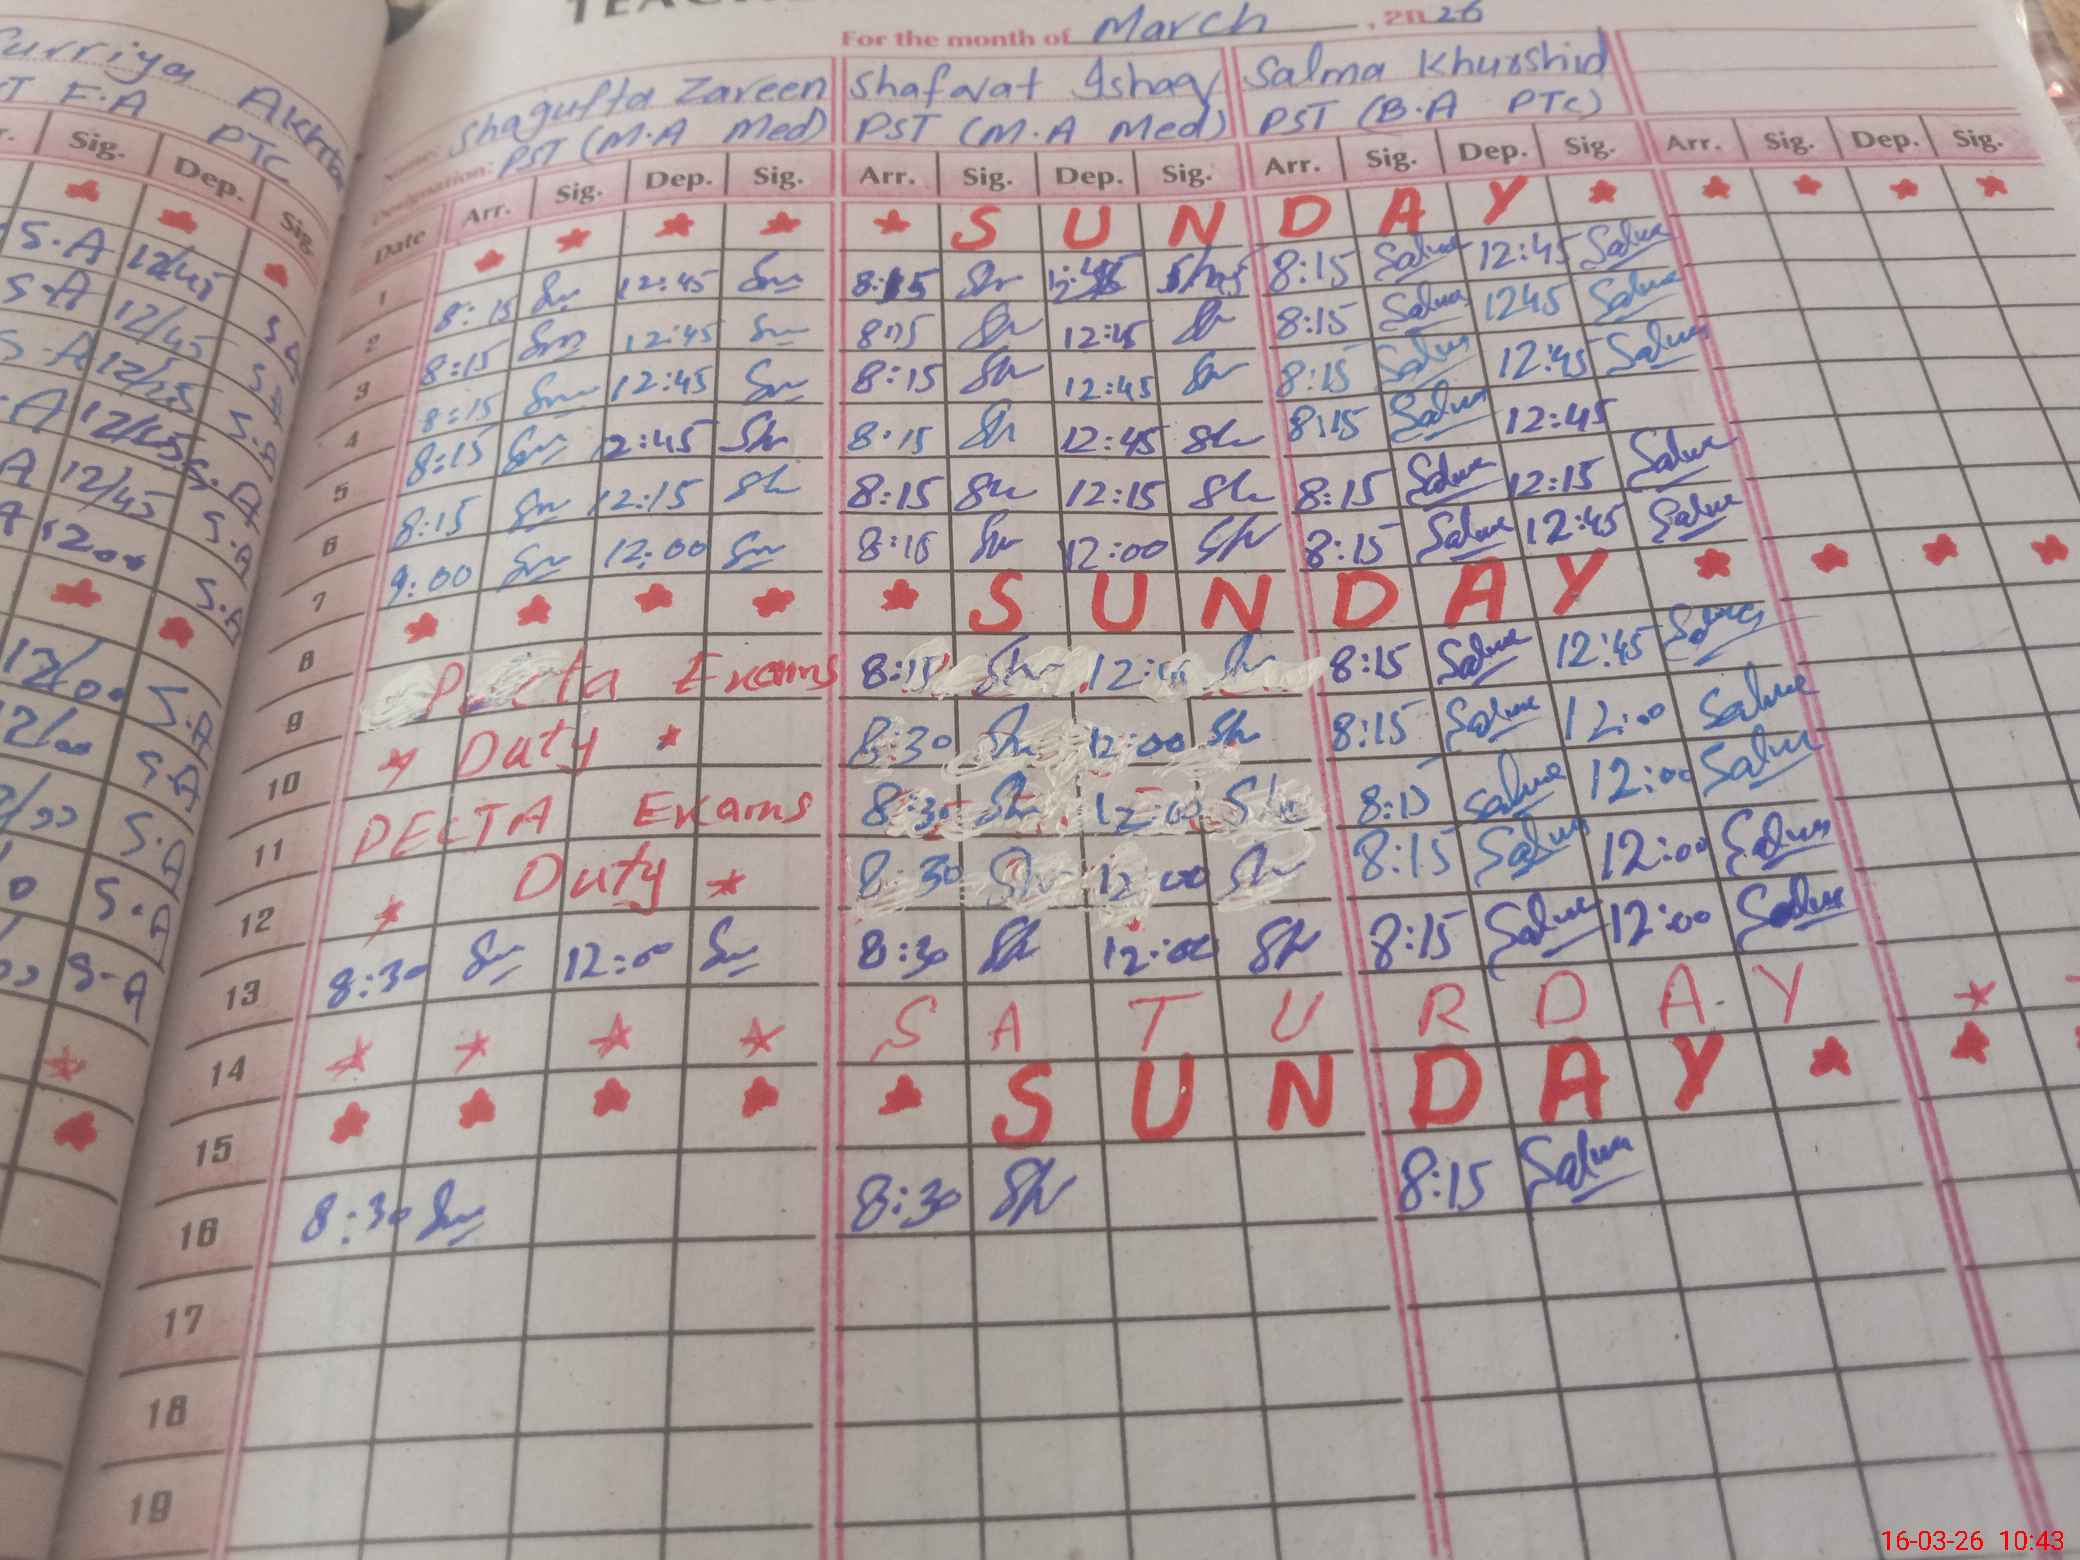 For the month of March, 2026
urriya Akhtar
Shagufta Zareen Shafavat Ishaq Salma Khurshid
T F.A PTC
Name:
Designation: PST (M.A Med) PST (M.A Med) PST (B.A PTC)
Sig. Dep. Sig. Date Arr. Sig. Dep. Sig. Arr. Sig. Dep. Sig. Arr. Sig. Dep. Sig. Arr. Sig. Dep. Sig.
1 S U N D A Y
S.A 12/45 2 8:15 Sm 12:45 Sm 8:15 Sh 12:45 8:15 Salma 12:45 Salma
S.A 12/45 3 8:15 Sm 12:45 Sm 8:15 Sh 12:45 Sh 8:15 Salma 1245 Salma
S.A 12/45 S.A 4 8:15 Sm 12:45 Sm 8:15 Sh 12:45 Sh 8:15 Salma 12:45 Salma
A 12/45 S.A 5 8:15 Sm 2:45 Sh 8:15 Sh 12:45 Sh 8:15 Salma 12:45
A 12/45 S.A 6 8:15 Sm 12:15 Sh 8:15 Sh 12:15 Sh 8:15 Salma 12:15 Salma
1200 S.A 7 9:00 Sm 12:00 Sm 8:15 Sh 12:00 Sh 8:15 Salma 12:45 Salma
8 S U N D A Y
12/00 S.A 9 Pecta Exams 8:15 Sh 12:45 Sh 8:15 Salma 12:45 Salma
12/00 S.A 10 Duty 8:30 Sh 12:00 Sh 8:15 Salma 12:00 Salma
S.A 11 PECTA Exams 8:30 Sh 12:00 Sh 8:15 Salma 12:00 Salma
S.A 12 Duty 8:30 Sh 12:00 Sh 8:15 Salma 12:00 Salma
S-A 13 8:30 Sm 12:00 Sm 8:30 Sh 12:00 Sh 8:15 Salma 12:00 Salma
14 S A T U R D A Y
15 S U N D A Y
16 8:30 Sm 8:30 Sh 8:15 Salma
17
18
19
16-03-26 10:43